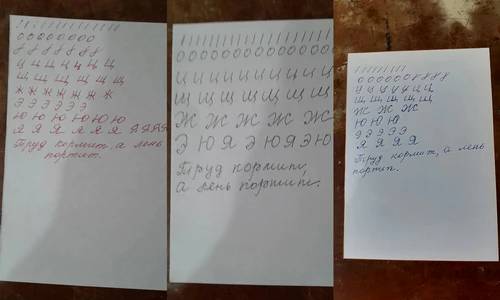 ! I I I I I I I I I I I I
О О О О О О О О
8 8 8 8 8 8 8
Ц Ц Ц Ц Ц Ц Ц
Щ Щ Щ Щ Щ Щ
Ж Ж Ж Ж Ж Ж Ж
Э Э Э Э Э Э
Ю Ю Ю Ю Ю Ю
Я Я Я Я Я Я Я Я Я Я
Труд кормит, а лень
портит.
О О О О О О О О О О О О О О
Ц Ц Ц Ц Ц Ц Ц Ц Ц
Щ Щ Щ Щ Щ Щ Щ
Ж Ж Ж Ж Ж Ж
Э Ю Я Э Ю Я Э Ю
Труд кормит,
а лень портит.
О О О О О О 8 8 8 8
Ц Ц Ц Ц Ц Ц Ц
Щ Щ Щ Щ Щ
Ж Ж Ж Ж
Ю Ю Ю
Э Э Э Э Э
Я Я Я Я
Труд кормит, а лень
портит.